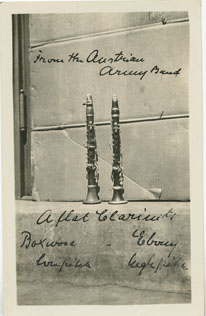 From the Austrian
Army Band
A flat Clarinets
Boxwood - Ebony
Low pitch high pitch